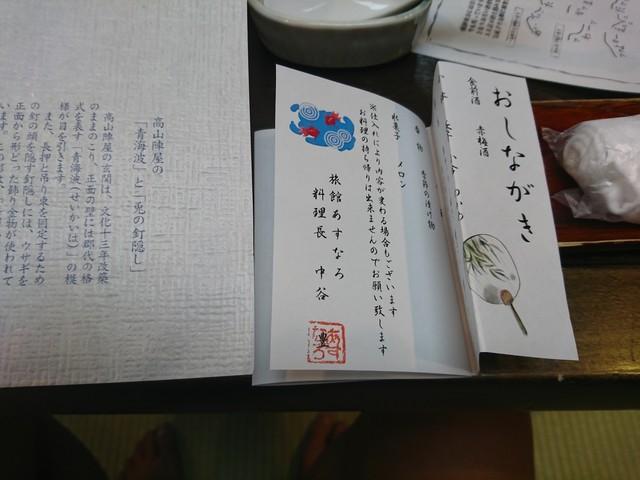 おしながき
食前酒
赤梅酒
香物
季節の漬け物
水菓子
メロン
※仕入れにより内容が変わる場合もございます
お料理の持ち帰りは出来ませんのでお願い致します
旅館あすなろ
料理長 中谷
高山陣屋の
「青海波」と「兎の釘隠し」
高山陣屋の玄関は、文化十三年改築
のままのこり、正面の壁には郡代の格
式を表す「青海波(せいかいは)」の模
様が目を引きます。
また、長押と吊り束を固定するため
の釘の頭を隠す釘隠しには、ウサギを
正面から形どった飾り金物が使われて
います。